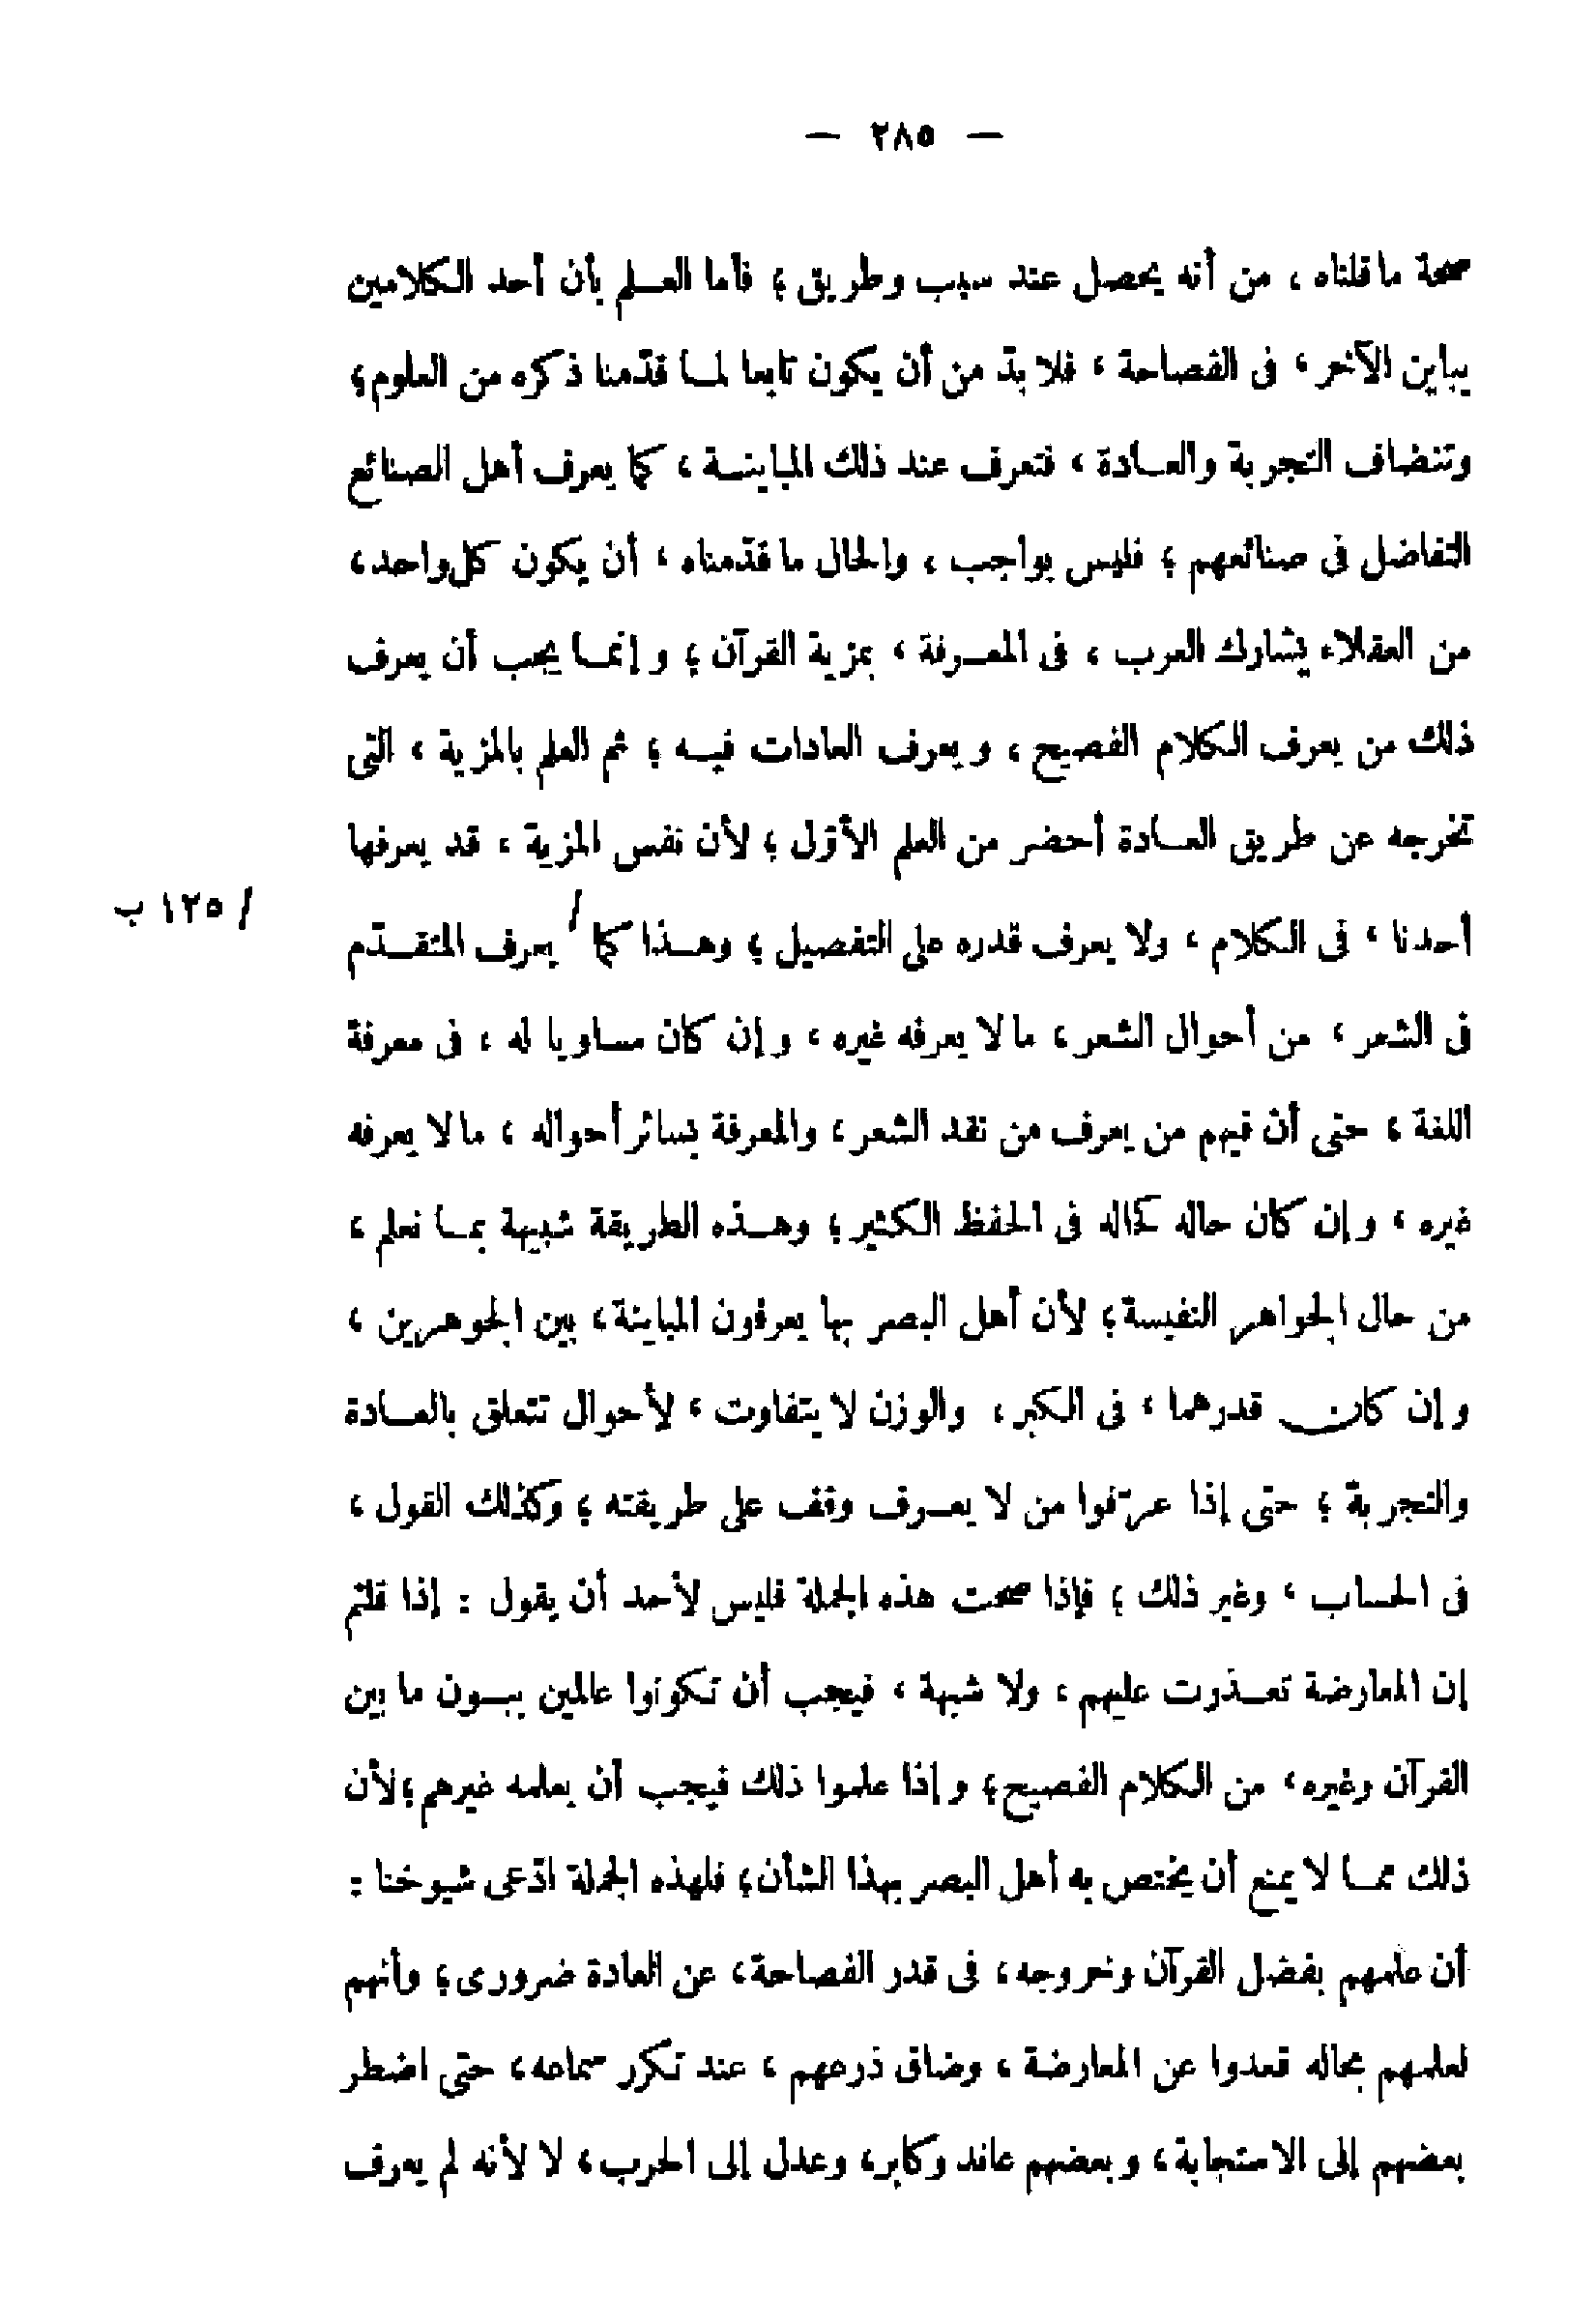 — ٢٨٥ —
صحة ما قلناه ، من أنه يحصل عند سبب وطريق ؛ فأما العـلم بأن أحد الكلامين
يباين الآخر ، فى الفصاحة ، فلا بدّ من أن يكون تابعا لمـا قدّمنا ذكره من العلوم ؛
وتنضاف التجربة والعـادة ، فتعرف عند ذلك المباينـة ، كما يعرف أهل الصنائع
التفاضل فى صنائعهم ؛ فليس بواجب ، والحال ما قدّمناه ، أن يكون كل واحد ،
من العقلاء يشارك العرب ، فى المعـرفة ، بمزية القرآن ؛ وإنمـا يجب أن يعرف
ذلك من يعرف الكلام الفصيح ، ويعرف العادات فيـه ؛ ثم العلم بالمزية ، التى
تخرجه عن طريق العـادة أحضر من العلم الأوّل ؛ لأن نفس المزية ، قد يعرفها
أحدنا ، فى الكلام ، ولا يعرف قدره على التفصيل ؛ وهـذا كما / يعرف المتقـدّم
/ ١٢٥ ب
فى الشعر ، من أحوال الشعر ، ما لا يعرفه غيره ، وإن كان مساويا له ، فى معرفة
اللغة ، حتى أن فيهم من يعرف من نقد الشعر ، والمعرفة بسائر أحواله ، ما لا يعرفه
غيره ، وإن كان حاله كحاله فى الحفظ الكثير ؛ وهـذه الطريقة شبيهة بمـا نعلم ،
من حال الجواهر النفيسة ؛ لأن أهل البصر بها يعرفون المباينة ، بين الجوهرين ،
وإن كان قدرهما ، فى الكبر ، والوزن لا يتفاوت ، لأحوال تتعلق بالعـادة
والتجربة ؛ حتى إذا عرّفوا من لا يعـرف وقف على طريقته ؛ وكذلك القول ،
فى الحساب ، وغير ذلك ؛ فإذا صحت هذه الجملة فليس لأحد أن يقول : إذا قلتم
إن المعارضة تعـذرت عليهم ، ولا شبهة ، فيجب أن تكونوا عالمين ببـون ما بين
القرآن وغيره ، من الكلام الفصيح ؛ وإذا علموا ذلك فيجب أن يعلمه غيرهم ؛ لأن
ذلك ممـا لا يمنع أن يختص به أهل البصر بهذا الشأن ؛ فلهذه الجملة ادّعى شيوخنا :
أن علمهم بفضل القرآن وخروجه ، فى قدر الفصاحة ، عن العادة ضرورى ؛ وأنهم
لعلمهم بحاله قعدوا عن المعارضة ، وضاق ذرعهم ، عند تكرر سماعه ، حتى اضطر
بعضهم إلى الاستجابة ، وبعضهم عاند وكابر ، وعدل إلى الحرب ، لا لأنه لم يعرف